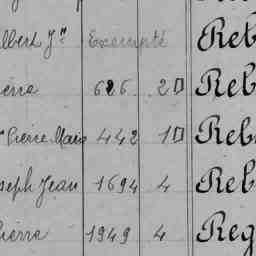 lbert Jn Exempté Reb
ierre 626 2 Reb
Pierre Marie 442 1 Reb
seph Jean 1694 4 Reb
Pierre 1949 4 Reg